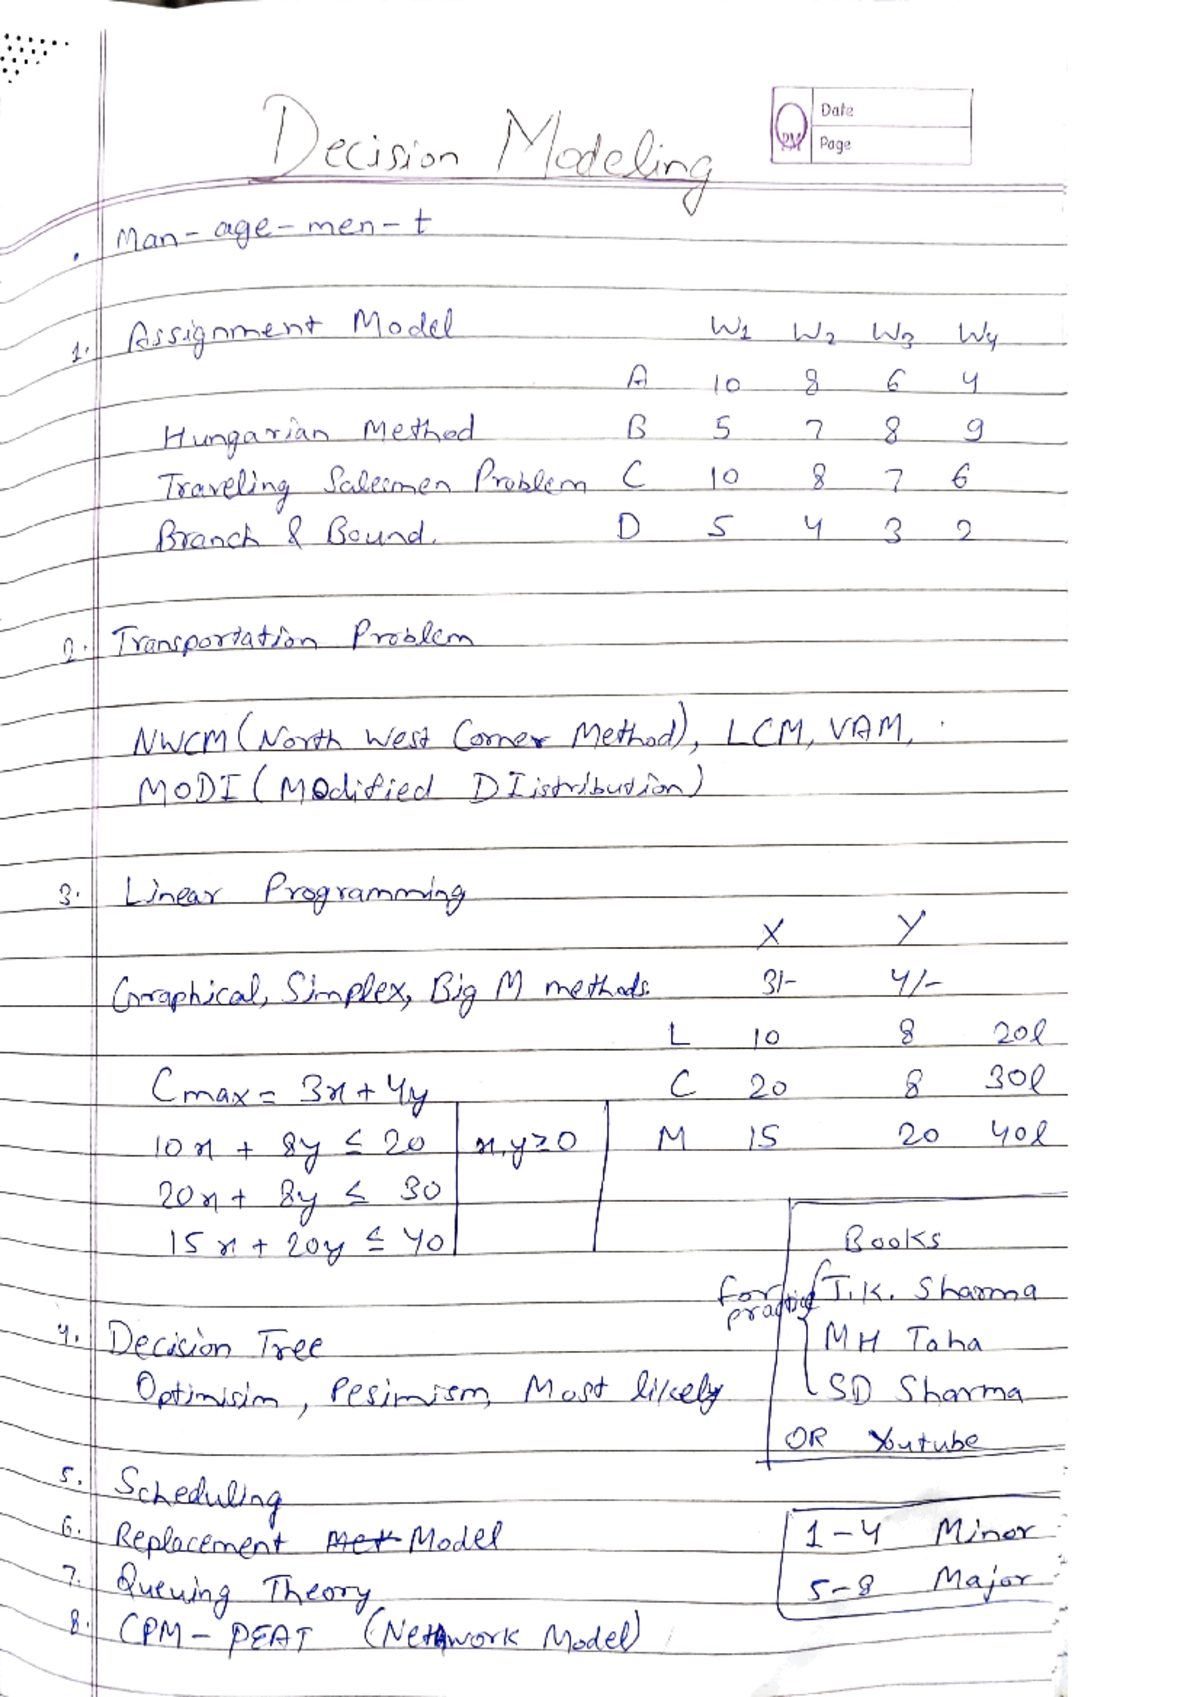 Decision Modeling
Date
PM Page
Man-age-men-t
1. Assignment Model W1 W2 W3 W4
A 10 8 6 4
Hungarian Method B 5 7 8 9
Traveling Salesmen Problem C 10 8 7 6
Branch & Bound. D 5 4 3 2
2. Transportation Problem
NWCM (North West Corner Method), LCM, VAM,
MODI (MOdified DIistribution)
3. Linear Programming
X Y
Graphical, Simplex, Big M methods. 3/- 4/-
L 10 8 20l
Cmax = 3x + 4y C 20 8 30l
10x + 8y ≤ 20 x,y≥0 M 15 20 40l
20x + 8y ≤ 30
15x + 20y ≤ 40 Books
for practice T.K. Sharma
4. Decision Tree MH Taha
Optimisim, Pesimism, Most likely SD Sharma
OR Youtube
5. Scheduling
6. Replacement Met Model 1-4 Minor
7. Queuing Theory 5-8 Major
8. CPM - PEAT (Network Model)